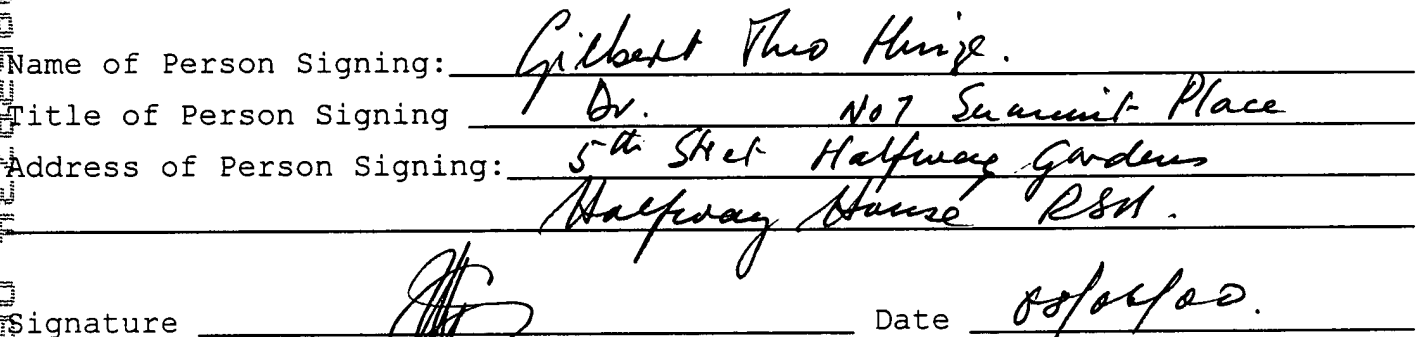 Name of Person Signing: Gilbert Theo Hinze.
Title of Person Signing Dr. No 7 Summit Place
Address of Person Signing: 5th Street Halfway Gardens
Halfway House RSA.
Signature
Date 08/06/00.